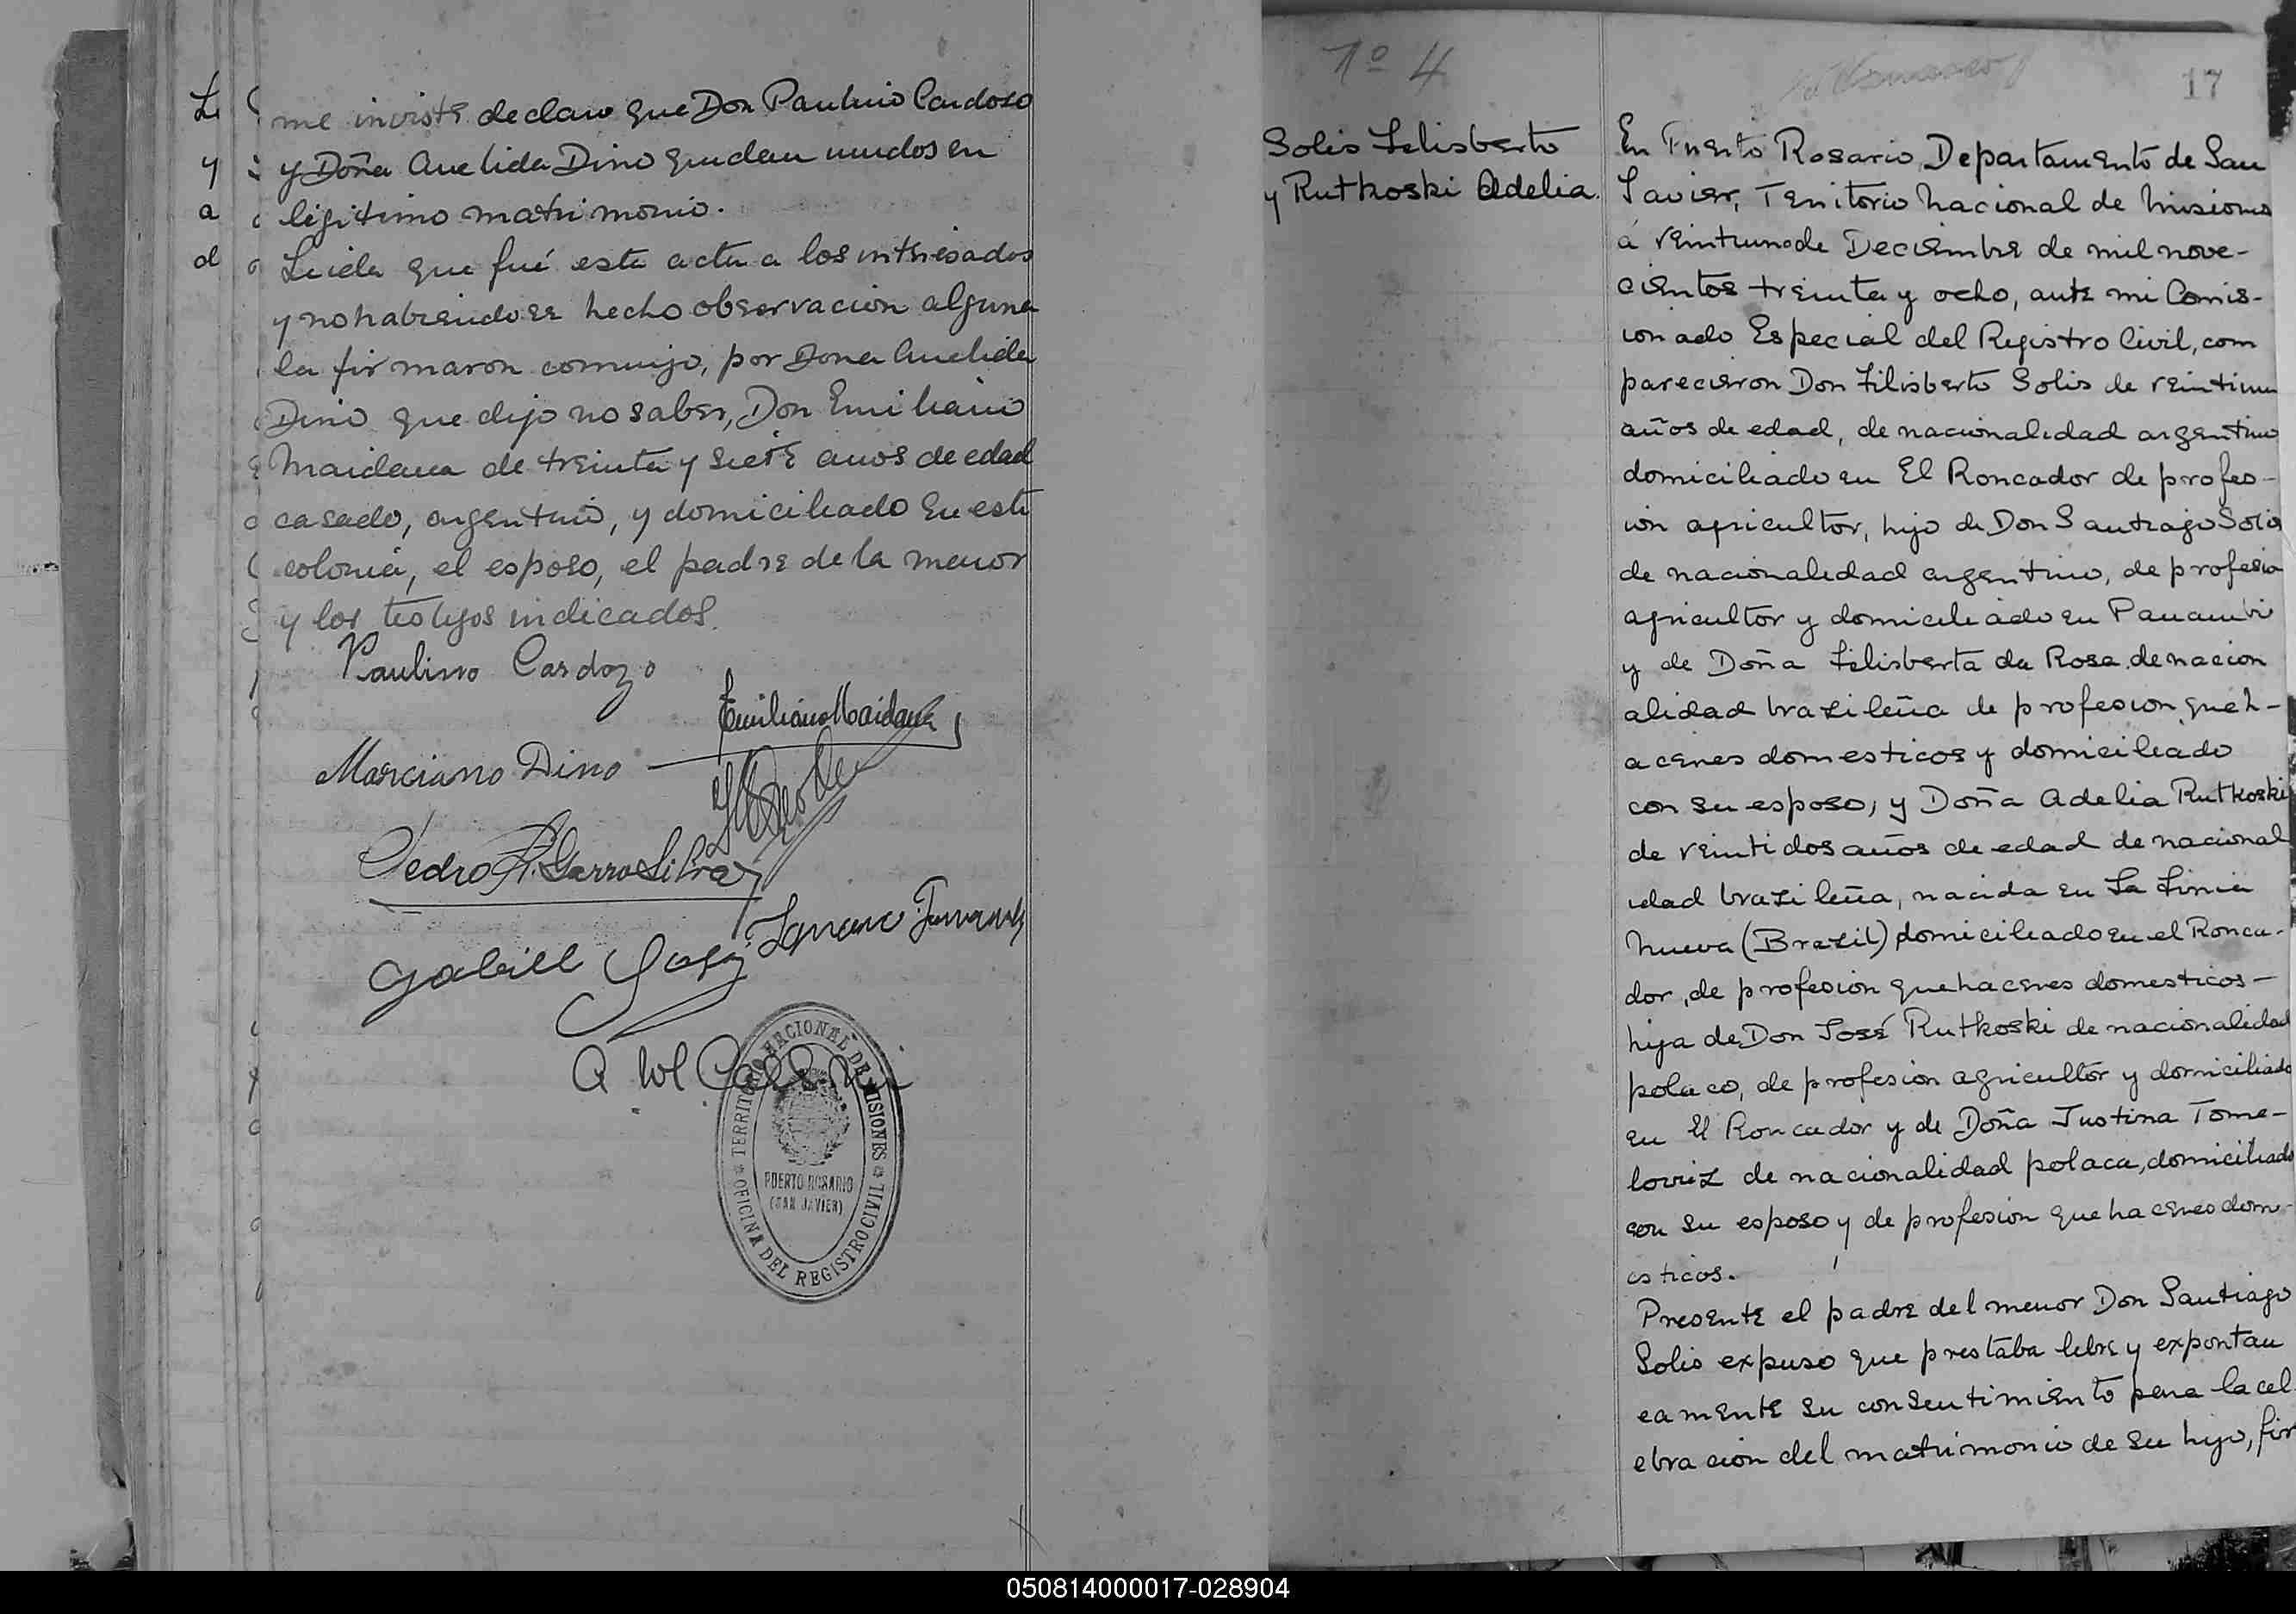 me inviste declaro que Don Paulino Cardoso
y Doña Anelida Dino quedan unidos en
legitimo matrimonio.
Leida que fué esta acta a los interesados
y no habiendose hecho observacion alguna
la firmaron conmigo, por Dona Anelida
Dino que dijo no saber, Don Emiliano
Maidana de treinta y siete anos de edad
casado, argentino, y domiciliado en esta
colonia, el esposo, el padre de la menor
y los testigos indicados.
Paulino Cardozo
Emiliano Maidana
Marciano Dino
Pedro A. Garro Silva
Gabriel Sosa
TERRITORIO NACIONAL DE MISIONES
OFICINA DEL REGISTRO CIVIL
PUERTO ROSARIO
(SAN JAVIER)
Nº 4
17
Solis Filisberto
y Rutkoski Adelia.
En Puerto Rosario, Departamento de San
Javier, Territorio Nacional de Misiones
á veintiuno de Deciembre de mil nove-
cientos treinta y ocho, ante mi Comis-
ionado Especial del Registro Civil, com
parecieron Don Filisberto Solis de veintiun
años de edad, de nacionalidad argentino
domiciliado en El Roncador de profes-
ion agricultor, hijo de Don Santiago Solis
de nacionalidad argentino, de profesion
agricultor y domiciliado en Panambi
y de Doña Filisberta da Rosa de nacion
alidad brazileña de profesion queh-
aceres domesticos y domiciliado
con su esposo, y Doña Adelia Rutkoski
de veintidos años de edad de nacional
idad brazileña, nacida en La Linia
Nueva (Brazil) domiciliado en el Ronca-
dor, de profesion quehaceres domesticos-
hija de Don José Rutkoski de nacionalidad
polaco, de profesion agricultor y domiciliado
en El Roncador y de Doña Justina Tome-
lovriz de nacionalidad polaca, domiciliado
con su esposo y de profesion quehaceres dom-
esticos.
Presente el padre del menor Don Santiago
Solis expuso que prestaba libre y expontan
eamente su consentimiento para la cel
ebracion del matrimonio de su hijo, fir
050814000017-028904